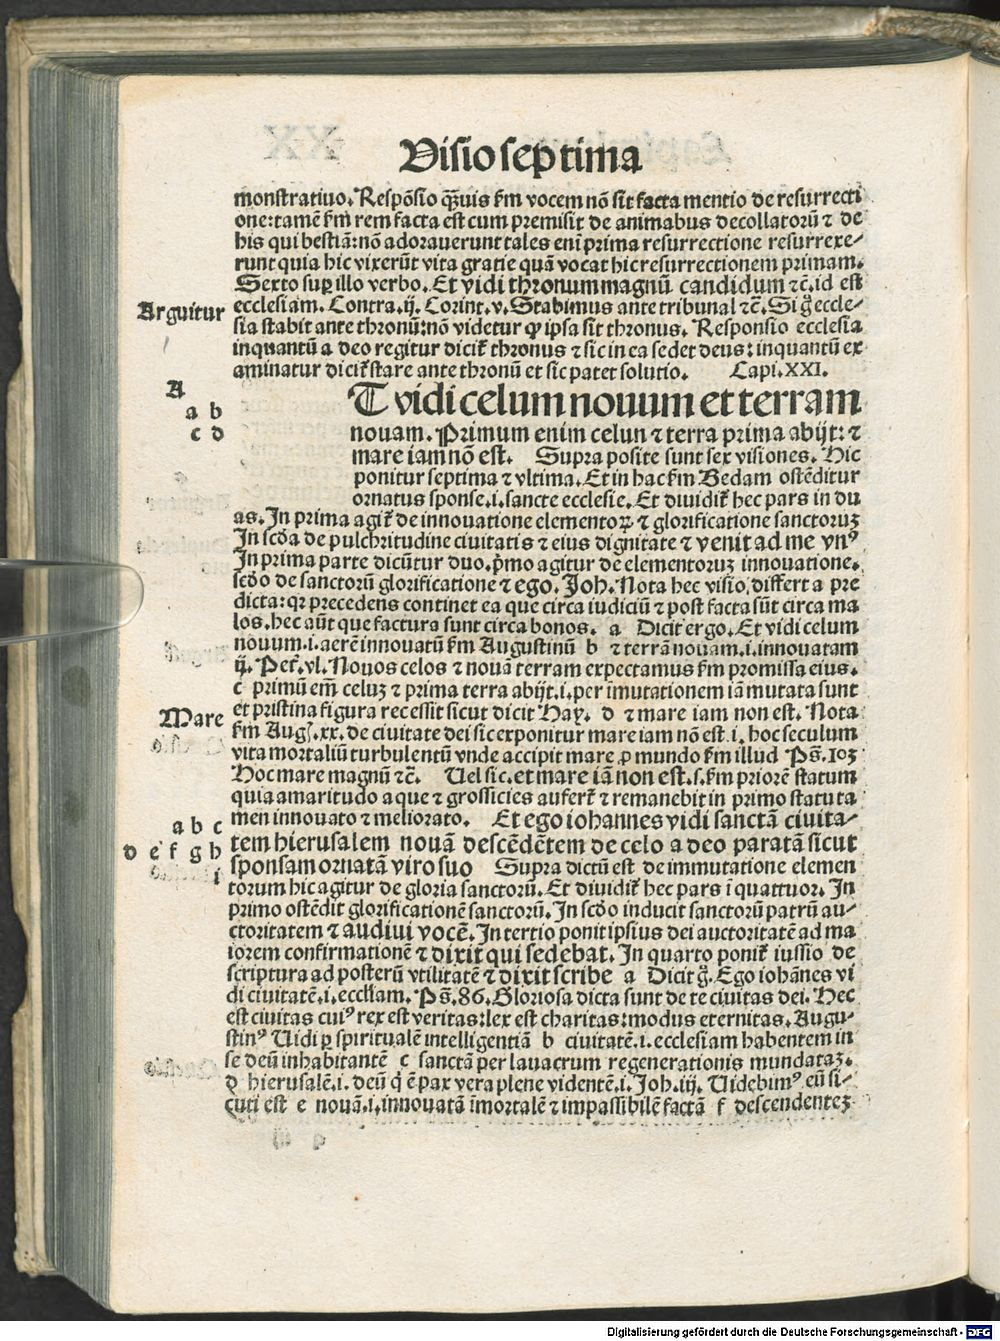 Visio septima
monstratiuo. Respōsio q̄uis fm vocem nō sit facta mentio de resurrecti
one: tamē fm rem facta est cum premisit de animabus decollatorū ⁊ de
his qui bestiā: nō adorauerunt tales eni prima resurrectione resurrexe⸗
runt quia hic vixerūt vita gratie quā vocat hic resurrectionem primam.
Sexto suꝑ illo verbo. Et vidi thronum magnū candidum ⁊c̄. id est
Arguitur
ecclesiam. Contra. ij. Corint. v. Stabimus ante tribunal ⁊c̄. Si g̊ eccle⸗
sia stabit ante thronū: nō videtur ꝙ ipsa sit thronus. Responsio ecclesia
inquantū a deo regitur dicit̃ thronus ⁊ sic in ea sedet deus: inquantū ex
aminatur dicit̃ stare ante thronū et sic patet solutio. Capi. XXI.
A
a b
c d
T vidi celum nouum et terram
nouam. Primum enim celun ⁊ terra prima abijt: ⁊
mare iam nō est. Supra posite sunt sex visiones. Hic
ponitur septima ⁊ vltima. Et in hac fm Bedam ostēditur
ornatus sponse. i. sancte ecclesie. Et diuidit̃ hec pars in du
as. In prima agit̃ de innouatione elementoꝝ ⁊ glorificatione sanctoruꝫ
In scd̄a de pulchritudine ciuitatis ⁊ eius dignitate ⁊ venit ad me vnꝰ
In prima parte dicūtur duo. p̄mo agitur de elementoruꝫ innouatione.
scd̄o de sanctorū glorificatione ⁊ ego. Joh. Nota hec visio, differt a pre
dicta: qꝛ precedens continet ea que circa iudiciū ⁊ post facta sūt circa ma
los. hec aūt que factura sunt circa bonos. a Dicit ergo. Et vidi celum
nouum. i. aerē innouatū fm Augustinū b ⁊ terrā nouam. i. innouatam
ij. Pet̃. vl. Nouos celos ⁊ nouā terram expectamus fm promissa eius.
c primū em̄ celuꝫ ⁊ prima terra abijt. i. per īmutationem iā mutata sunt
Mare
et pristina figura recessit sicut dicit Hay. d ⁊ mare iam non est. Nota
fm Aug. xx. de ciuitate dei sic exponitur mare iam nō est. i. hoc seculum
vita mortaliū turbulentū vnde accipit mare ꝓ mundo fm illud Ps̄. 103
Hoc mare magnū ⁊c̄. Uel sic. et mare iā non est. s. fm priorē statum
quia amaritudo aque ⁊ grossicies aufert̃ ⁊ remanebit in primo statu ta
a b c
men innouato ⁊ meliorato. Et ego iohannes vidi sanctā ciuita⸗
d e f g h
tem hierusalem nouā descēdētem de celo a deo paratā sicut
i
sponsam ornatā viro suo Supra dictū est de immutatione elemen
torum hic agitur de gloria sanctorū. Et diuidit̃ hec pars ī quattuor. In
primo ostēdit glorificationē sanctorū. In scd̄o inducit sanctorū patrū au⸗
ctoritatem ⁊ audiui vocē. In tertio ponit ipsius dei auctoritatē ad ma
iorem confirmationē ⁊ dixit qui sedebat. In quarto ponit̃ iussio de
scriptura ad posterū vtilitatē ⁊ dixit scribe a Dicit g̊. Ego iohānes vi
di ciuitatē. i. eccl̄iam. Ps̄. 86. Gloriosa dicta sunt de te ciuitas dei. Hec
est ciuitas cuiꝰ rex est veritas: lex est charitas: modus eternitas. Augu⸗
stinꝰ Uidi ꝑ spiritualē intelligentiā b ciuitatē. i. ecclesiam habentem in
se deū inhabitantē c sanctā per lauacrum regenerationis mundataꝫ.
d hierusalē. i. deū q̇ ē pax vera plene videntē. i. Joh. iij. Uidebimꝰ eū si⸗
cuti est e nouā. i. innouatā īmortalē ⁊ impassibilē factā f descendenteꝫ
Digitalisierung gefördert durch die Deutsche Forschungsgemeinschaft - DFG